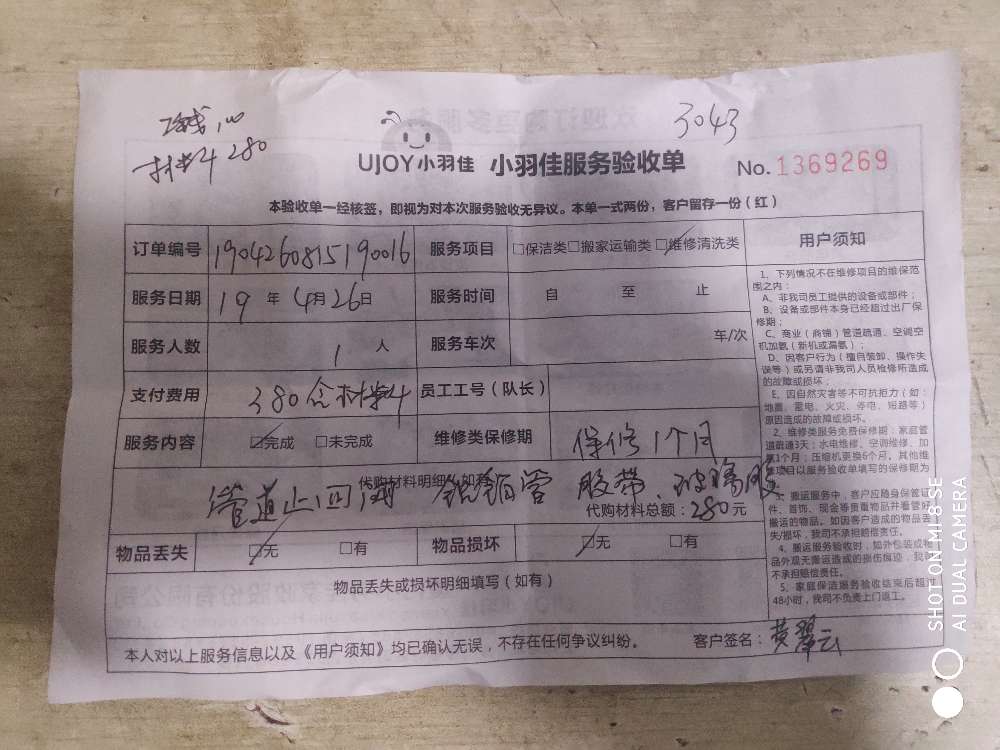 3043
材料 280
UJOY小羽佳 小羽佳服务验收单 No.1369269
本验收单一经核签，即视为对本次服务验收无异议。本单一式两份，客户留存一份（红）
订单编号 1904260815190016 服务项目 □保洁类□搬家运输类☑维修清洗类
服务日期 19年4月26日 服务时间 自 至 止
服务人数 1人 服务车次 车/次
支付费用 380含材料 员工工号（队长）
服务内容 ☑完成 □未完成 维修类保修期 保修1个月
代购材料明细（如有）
管道止回阀 铝箔管 胶带、玻璃胶
代购材料总额：280元
物品丢失 ☑无 □有 物品损坏 ☑无 □有
物品丢失或损坏明细填写（如有）
本人对以上服务信息以及《用户须知》均已确认无误，不存在任何争议纠纷。 客户签名：黄翠云
用户须知
1、下列情况不在维修项目的维保范
围之内：
A、非我司员工提供的设备或部件；
B、设备或部件本身已经超过出厂保
修期；
C、商业（商铺）管道疏通、空调空
机加氟（新机或漏氟）；
D、因客户行为（擅自装卸、操作失
误等）或另请非我司人员检修所造成
的故障或损坏；
E、因自然灾害等不可抗拒力（如：
地震、雷电、火灾、停电、短路等）
原因造成的故障或损坏。
2、维修类服务免费保修期：家庭管
道疏通3天；水电维修、空调维修、加
氟1个月；压缩机更换6个月，其他维
修项目以服务验收单填写的保修期为
3、搬运服务中，客户应随身保管证
件、首饰、现金等贵重物品并看管好
搬运的物品。如因客户造成的物品丢
失/损坏，我司不承担赔偿责任。
4、搬运服务验收时，如外包装或物
品外观无搬运造成的损伤痕迹，我司
不承担赔偿责任。
5、家庭保洁服务验收结束后超过
48小时，我司不负责上门返工。
SHOT ON MI 8 SE
AI DUAL CAMERA